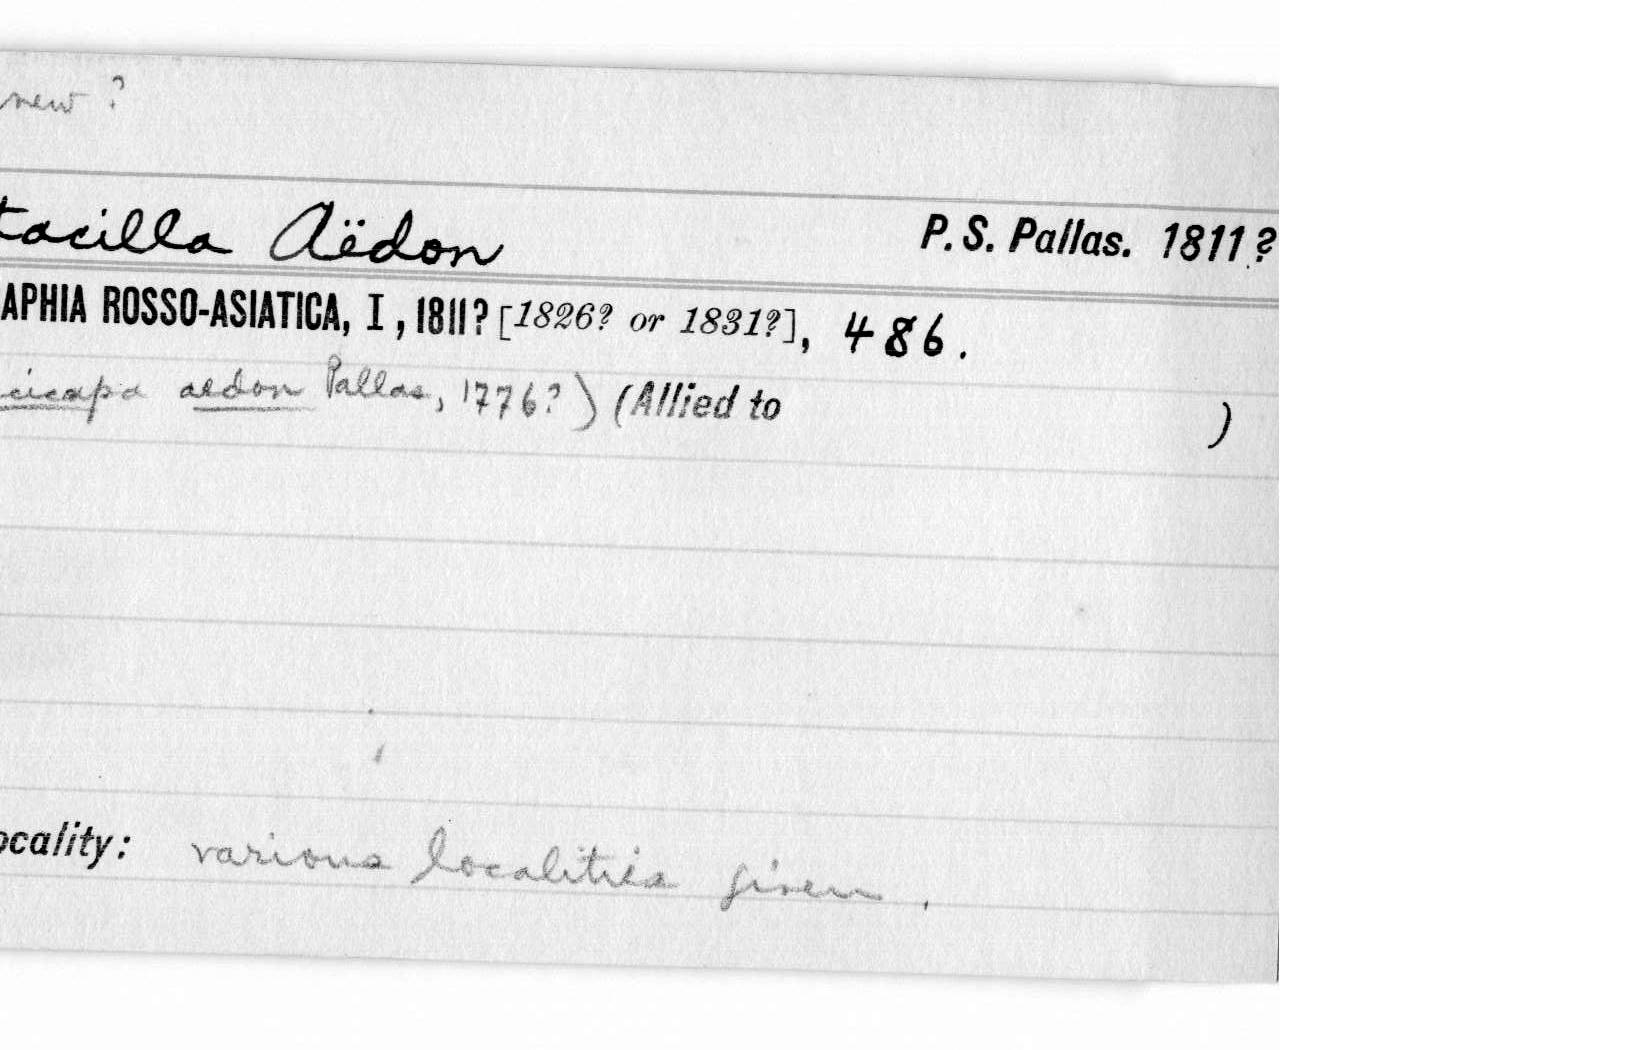 new ?
tacilla Aëdon P. S. Pallas. 1811?
APHIA ROSSO-ASIATICA, I, 1811? [1826? or 1831?], 486.
cicapa aedon Pallas, 1776?) (Allied to )
ocality: various localities given.